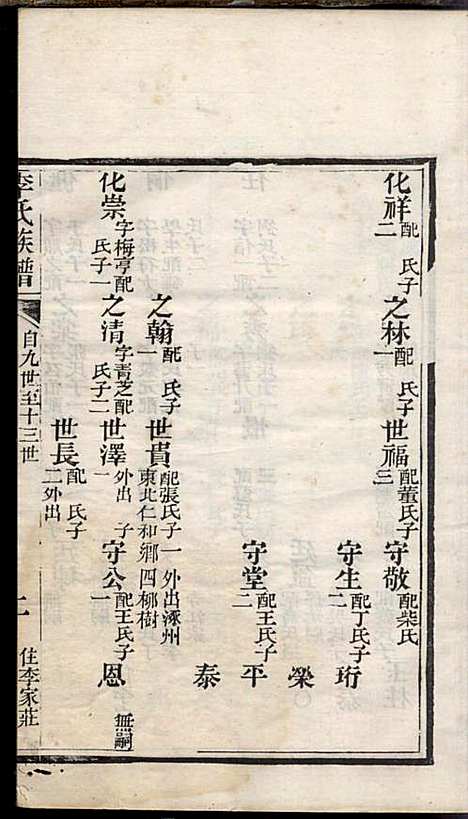 化祥配 氏子二 之林配 氏子一 世福配董氏子三 守敬配柴氏
守生配丁氏子二 珩
榮
守堂配王氏子二 平
泰
之翰配 氏子一 世貴配張氏子一外出涿州東北仁和鄉四栁樹
化崇字梅亭配 氏子一 之清字青芝配 氏子二 世澤外出 子一 守公配王氏子一 恩無嗣
世長配 氏子二外出
李氏族譜 自九世至十三世 二 住李家莊